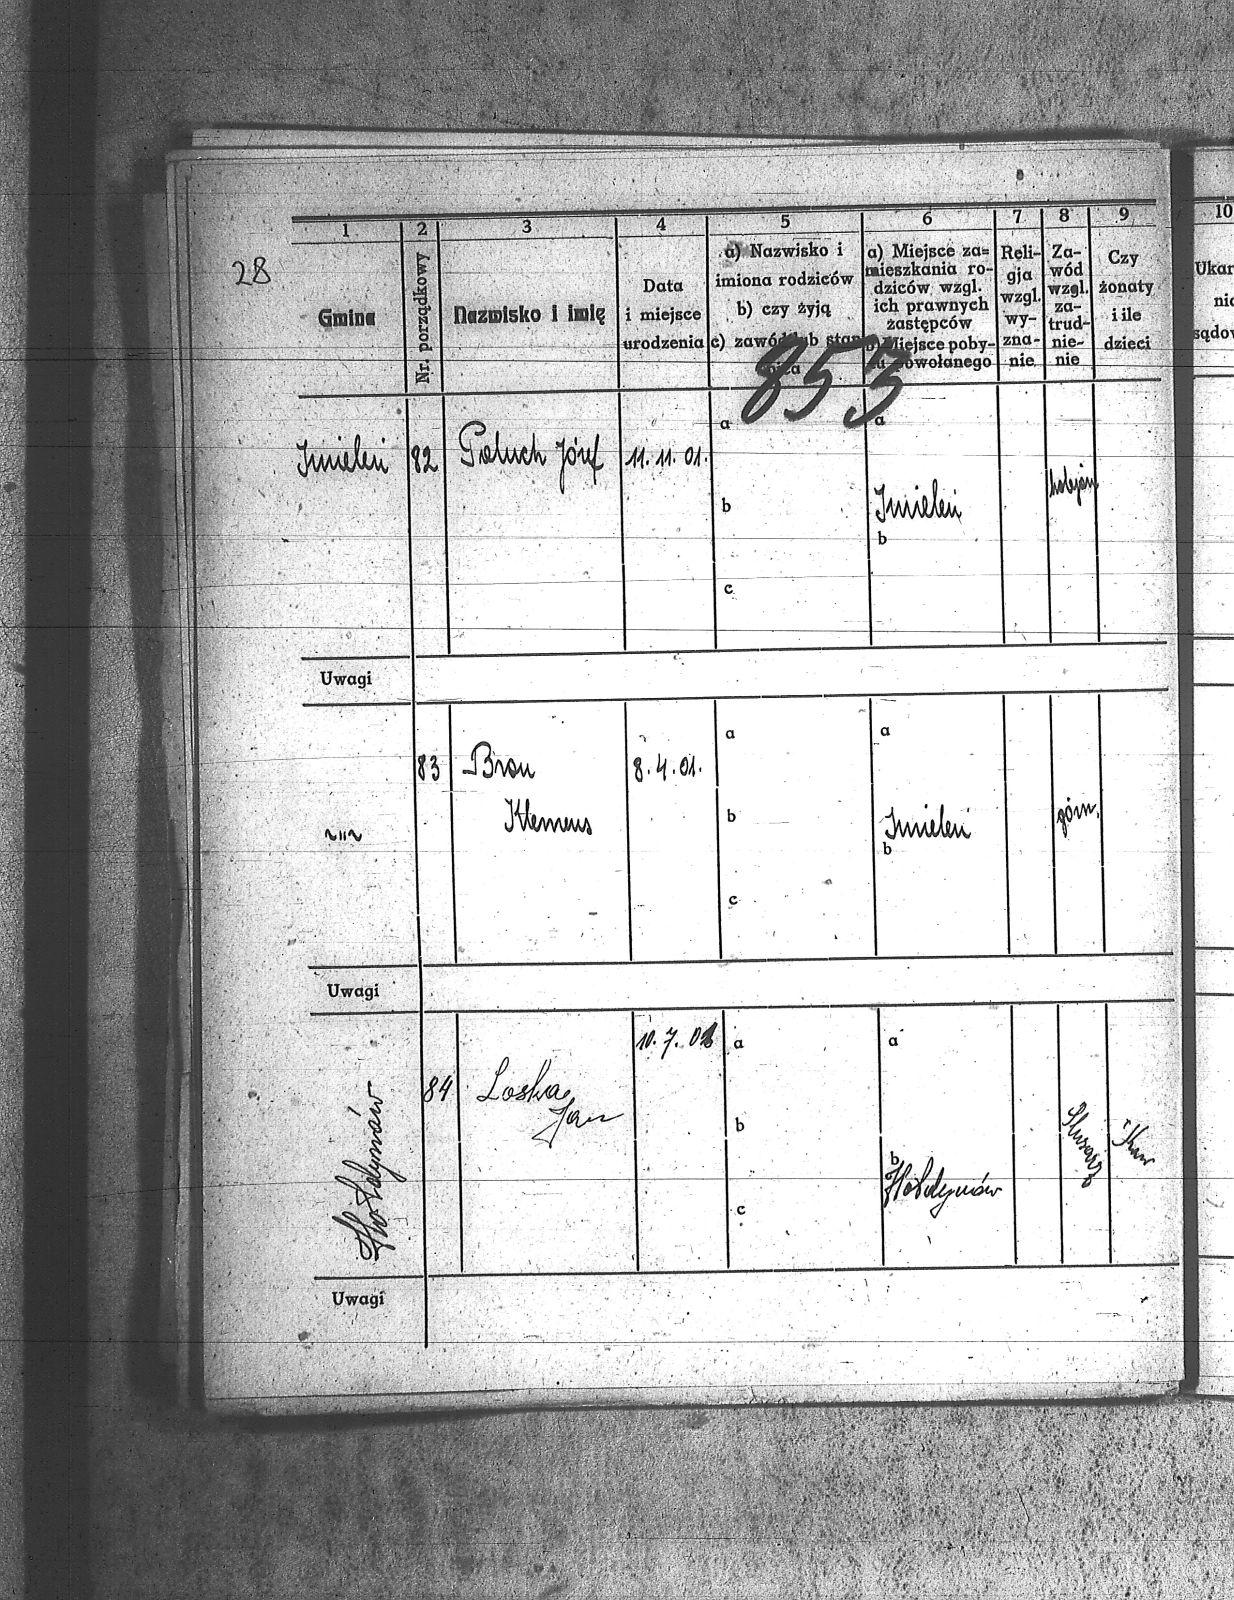 28
1 2 3 4 5 6 7 8 9 10
Gmina
Nr. porządkowy
Nazwisko i imię
Data
i miejsce
urodzenia
a) Nazwisko i
imiona rodziców
b) czy żyją
c) zawód lub stan
853
a) Miejsce za=
mieszkania ro-
dziców wzgl.
ich prawnych
zastępców
b) Miejsce poby-
tu powołanego
Reli-
gja
wzgl.
wy-
zna-
nie
Za-
wód
wzgl.
za-
trud-
nie-
nie
Czy
żonaty
i ile
dzieci
Ukar
nic
sądow
Imieleń 82 Paluch Józef 11.11.01.
a
b
c
a
Imieleń
b
kolejarz
Uwagi
~"~ 83 Bron
Klemens
8.4.01.
a
b
c
a
Imieleń
b
górn.
Uwagi
Hołdynów 84 Loska
Jan
10.7.01
a
b
c
a
b
Hołdynów
Ślusarz
Uwagi